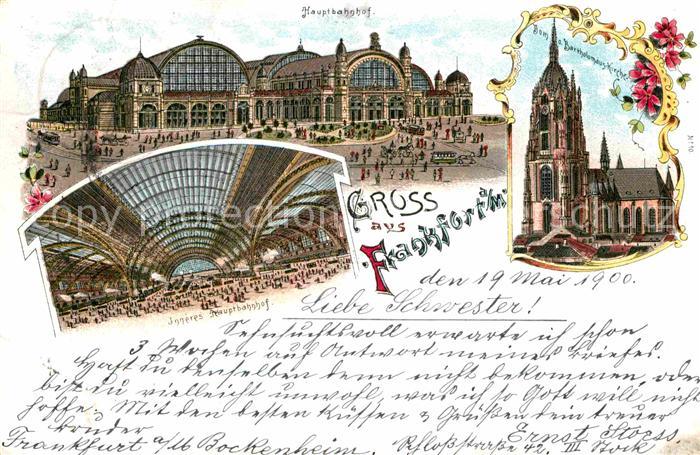 Hauptbahnhof.
Dom o. Bartholomäus-Kirche
No 10
GROSS
aus
Frankfort a/M
Inneres Hauptbahnhof.
den 19 Mai 1900.
Liebe Schwester!
Sehnsuchtsvoll erwarte ich schon
3 Wochen auf Antwort meines Briefes.
Hast du denselben denn nicht bekommen, oder
bist du vielleicht unwohl, was ich so Gott will nicht
hoffe. Mit den besten Küssen & Grüßen dein treuer
Bruder Ernst Stoess
Frankfurt a/M Bockenheim. Schloßstraße 42. III Stock
copyright